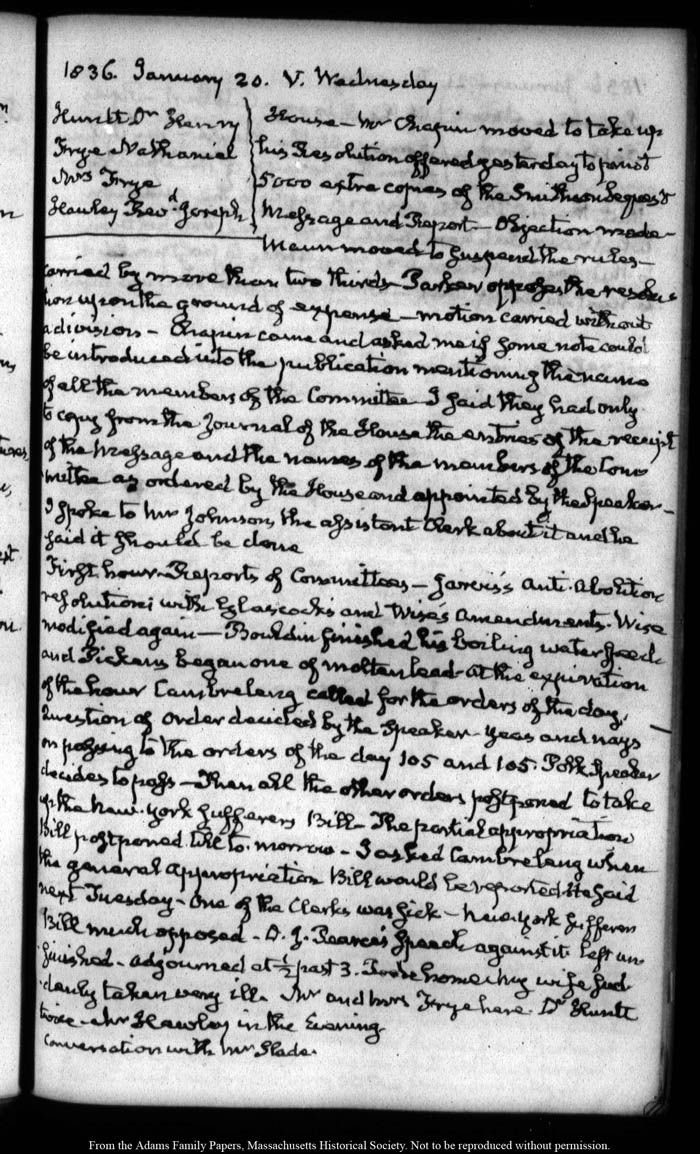 1836. January 20. V. Wednesday
Huntt Dr Henry
Frye Nathaniel
Mrs Frye
Hawley Revd. Joseph
House — Mr Chapin moved to take up
his Resolution offered yesterday to print
5000 extra copies of the Smithson bequest
Message and Report — Objection made —
Mann moved to suspend the rules —
carried by more than two thirds — Parker opposes the resolu-
tion upon the ground of expense — motion carried without
a division — Chapin came and asked me if some note could
be introduced into the publication mentioning the name
of all the members of the Committee — I said they had only
to copy from the Journal of the House the entries of the receipt
of the Message and the names of the members of the Com-
mittee as ordered by the House and appointed by the Speaker —
I spoke to Mr Johnson, the assistant Clerk about it and he
said it should be done
First hour. Reports of Committees — Jarvis's anti-Abolition
resolutions with Glascock's and Wise's amendments. Wise
modified again — Bouldin finished his boiling water speech
and Pickens began one of molten lead — at the expiration
of the hour Cambreleng called for the orders of the day.
Question of order decided by the Speaker — yeas and nays
on passing to the orders of the day 105 and 105. Polk Speaker
decides to pass — Then all the other orders postponed to take
up the New-York sufferers Bill — The partial appropriation
Bill postponed till to-morrow — I asked Cambreleng when
the general appropriation Bill would be reported — He said
next Tuesday — One of the Clerks was sick — New-York sufferers
Bill much opposed — D. J. Pearce's speech against it left un-
finished — adjourned at ½ past 3. home my wife sud-
denly taken very ill. Mr and Mrs Frye here. Dr Huntt
twice — Mr Hawley in the Evening
Conversation with Mr Slade.
From the Adams Family Papers, Massachusetts Historical Society. Not to be reproduced without permission.